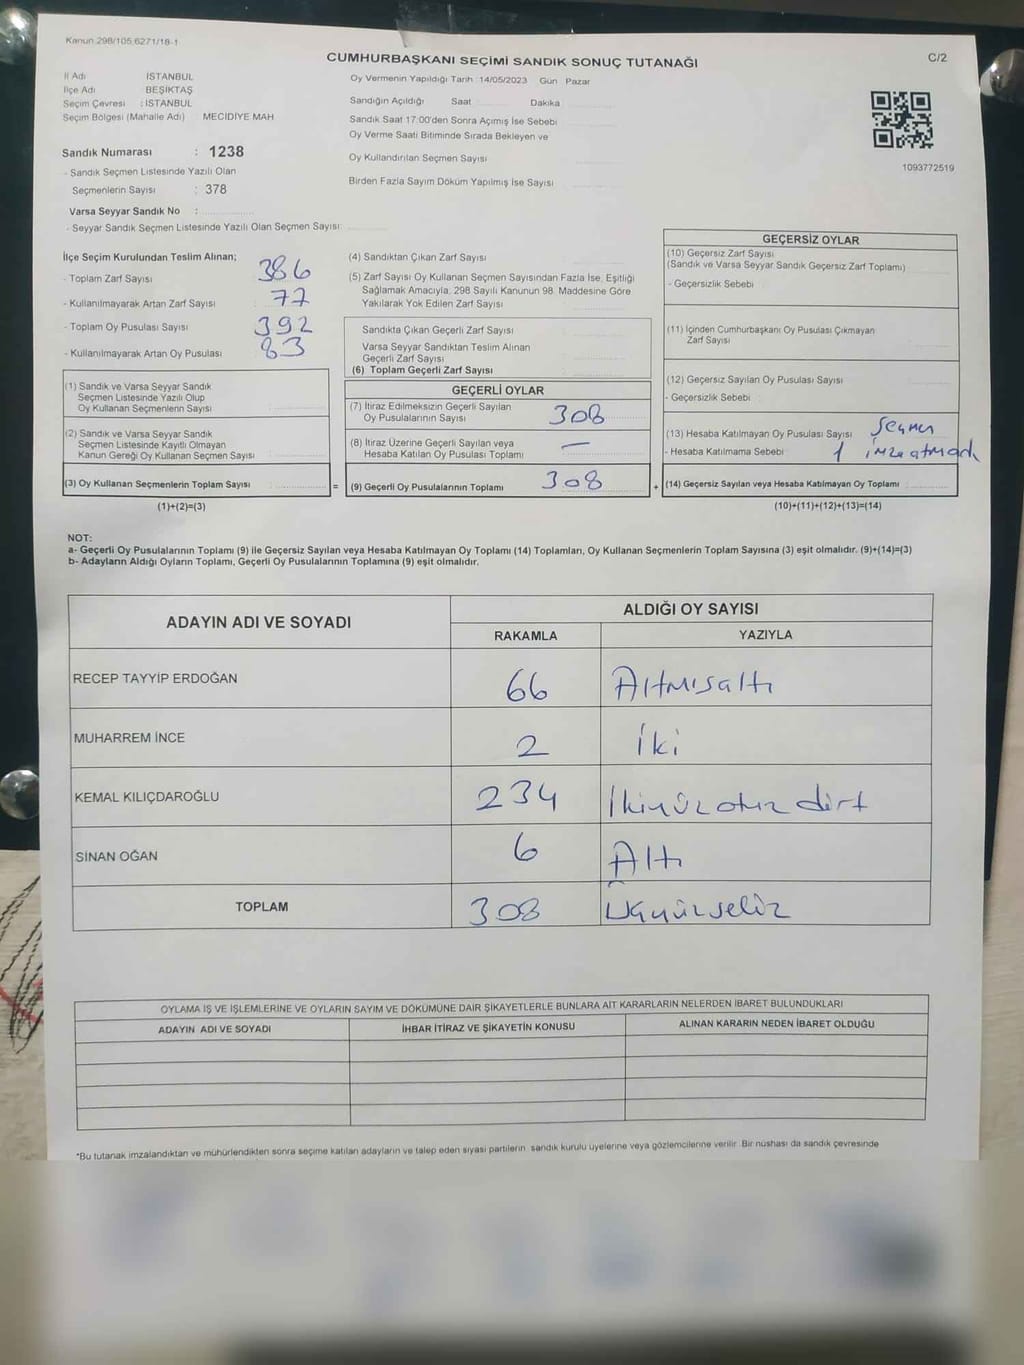 Kanun 298/105,6271/18-1
CUMHURBAŞKANI SEÇİMİ SANDIK SONUÇ TUTANAĞI
C/2
İl Adı İSTANBUL
İlçe Adı BEŞİKTAŞ
Seçim Çevresi : İSTANBUL
Seçim Bölgesi (Mahalle Adı) MECİDİYE MAH
Sandık Numarası : 1238
- Sandık Seçmen Listesinde Yazılı Olan
Seçmenlerin Sayısı : 378
Varsa Seyyar Sandık No :
- Seyyar Sandık Seçmen Listesinde Yazılı Olan Seçmen Sayısı:
Oy Vermenin Yapıldığı Tarih :14/05/2023 Gün Pazar
Sandığın Açıldığı Saat Dakika
Sandık Saat 17:00'den Sonra Açımış İse Sebebi
Oy Verme Saati Bitiminde Sırada Bekleyen ve
Oy Kullandırılan Seçmen Sayısı
Birden Fazla Sayım Döküm Yapılmış İse Sayısı
1093772519
İlçe Seçim Kurulundan Teslim Alınan;
- Toplam Zarf Sayısı 386
- Kullanılmayarak Artan Zarf Sayısı 77
- Toplam Oy Pusulası Sayısı 392
- Kullanılmayarak Artan Oy Pusulası 83
(1) Sandık ve Varsa Seyyar Sandık
Seçmen Listesinde Yazılı Olup
Oy Kullanan Seçmenlerin Sayısı
(2) Sandık ve Varsa Seyyar Sandık
Seçmen Listesinde Kayıtlı Olmayan
Kanun Gereği Oy Kullanan Seçmen Sayısı
(3) Oy Kullanan Seçmenlerin Toplam Sayısı =
(1)+(2)=(3)
(4) Sandıktan Çıkan Zarf Sayısı
(5) Zarf Sayısı Oy Kullanan Seçmen Sayısından Fazla İse, Eşitliği
Sağlamak Amacıyla, 298 Sayılı Kanunun 98. Maddesine Göre
Yakılarak Yok Edilen Zarf Sayısı
Sandıkta Çıkan Geçerli Zarf Sayısı
Varsa Seyyar Sandıktan Teslim Alınan
Geçerli Zarf Sayısı
(6) Toplam Geçerli Zarf Sayısı
GEÇERLİ OYLAR
(7) İtiraz Edilmeksizin Geçerli Sayılan
Oy Pusulalarının Sayısı 308
(8) İtiraz Üzerine Geçerli Sayılan veya
Hesaba Katılan Oy Pusulası Toplamı —
(9) Geçerli Oy Pusulalarının Toplamı 308 +
GEÇERSİZ OYLAR
(10) Geçersiz Zarf Sayısı
(Sandık ve Varsa Seyyar Sandık Geçersiz Zarf Toplamı)
- Geçersizlik Sebebi
(11) İçinden Cumhurbaşkanı Oy Pusulası Çıkmayan
Zarf Sayısı
(12) Geçersiz Sayılan Oy Pusulası Sayısı
- Geçersizlik Sebebi
(13) Hesaba Katılmayan Oy Pusulası Sayısı Seçmen
- Hesaba Katılmama Sebebi 1 imza atmadı
(14) Geçersiz Sayılan veya Hesaba Katılmayan Oy Toplamı
(10)+(11)+(12)+(13)=(14)
NOT:
a- Geçerli Oy Pusulalarının Toplamı (9) ile Geçersiz Sayılan veya Hesaba Katılmayan Oy Toplamı (14) Toplamları, Oy Kullanan Seçmenlerin Toplam Sayısına (3) eşit olmalıdır. (9)+(14)=(3)
b- Adayların Aldığı Oyların Toplamı, Geçerli Oy Pusulalarının Toplamına (9) eşit olmalıdır.
ADAYIN ADI VE SOYADI
ALDIĞI OY SAYISI
RAKAMLA YAZIYLA
RECEP TAYYİP ERDOĞAN 66 Altmışaltı
MUHARREM İNCE 2 İki
KEMAL KILIÇDAROĞLU 234 İkiyüz otuz dört
SİNAN OĞAN 6 Altı
TOPLAM 308 Üçyüzsekiz
OYLAMA İŞ VE İŞLEMLERİNE VE OYLARIN SAYIM VE DÖKÜMÜNE DAİR ŞİKAYETLERLE BUNLARA AİT KARARLARIN NELERDEN İBARET BULUNDUKLARI
ADAYIN ADI VE SOYADI İHBAR İTİRAZ VE ŞİKAYETİN KONUSU ALINAN KARARIN NEDEN İBARET OLDUĞU
*Bu tutanak imzalandıktan ve mühürlendikten sonra seçime katılan adayların ve talep eden siyasi partilerin, sandık kurulu üyelerine veya gözlemcilerine verilir. Bir nüshası da sandık çevresinde